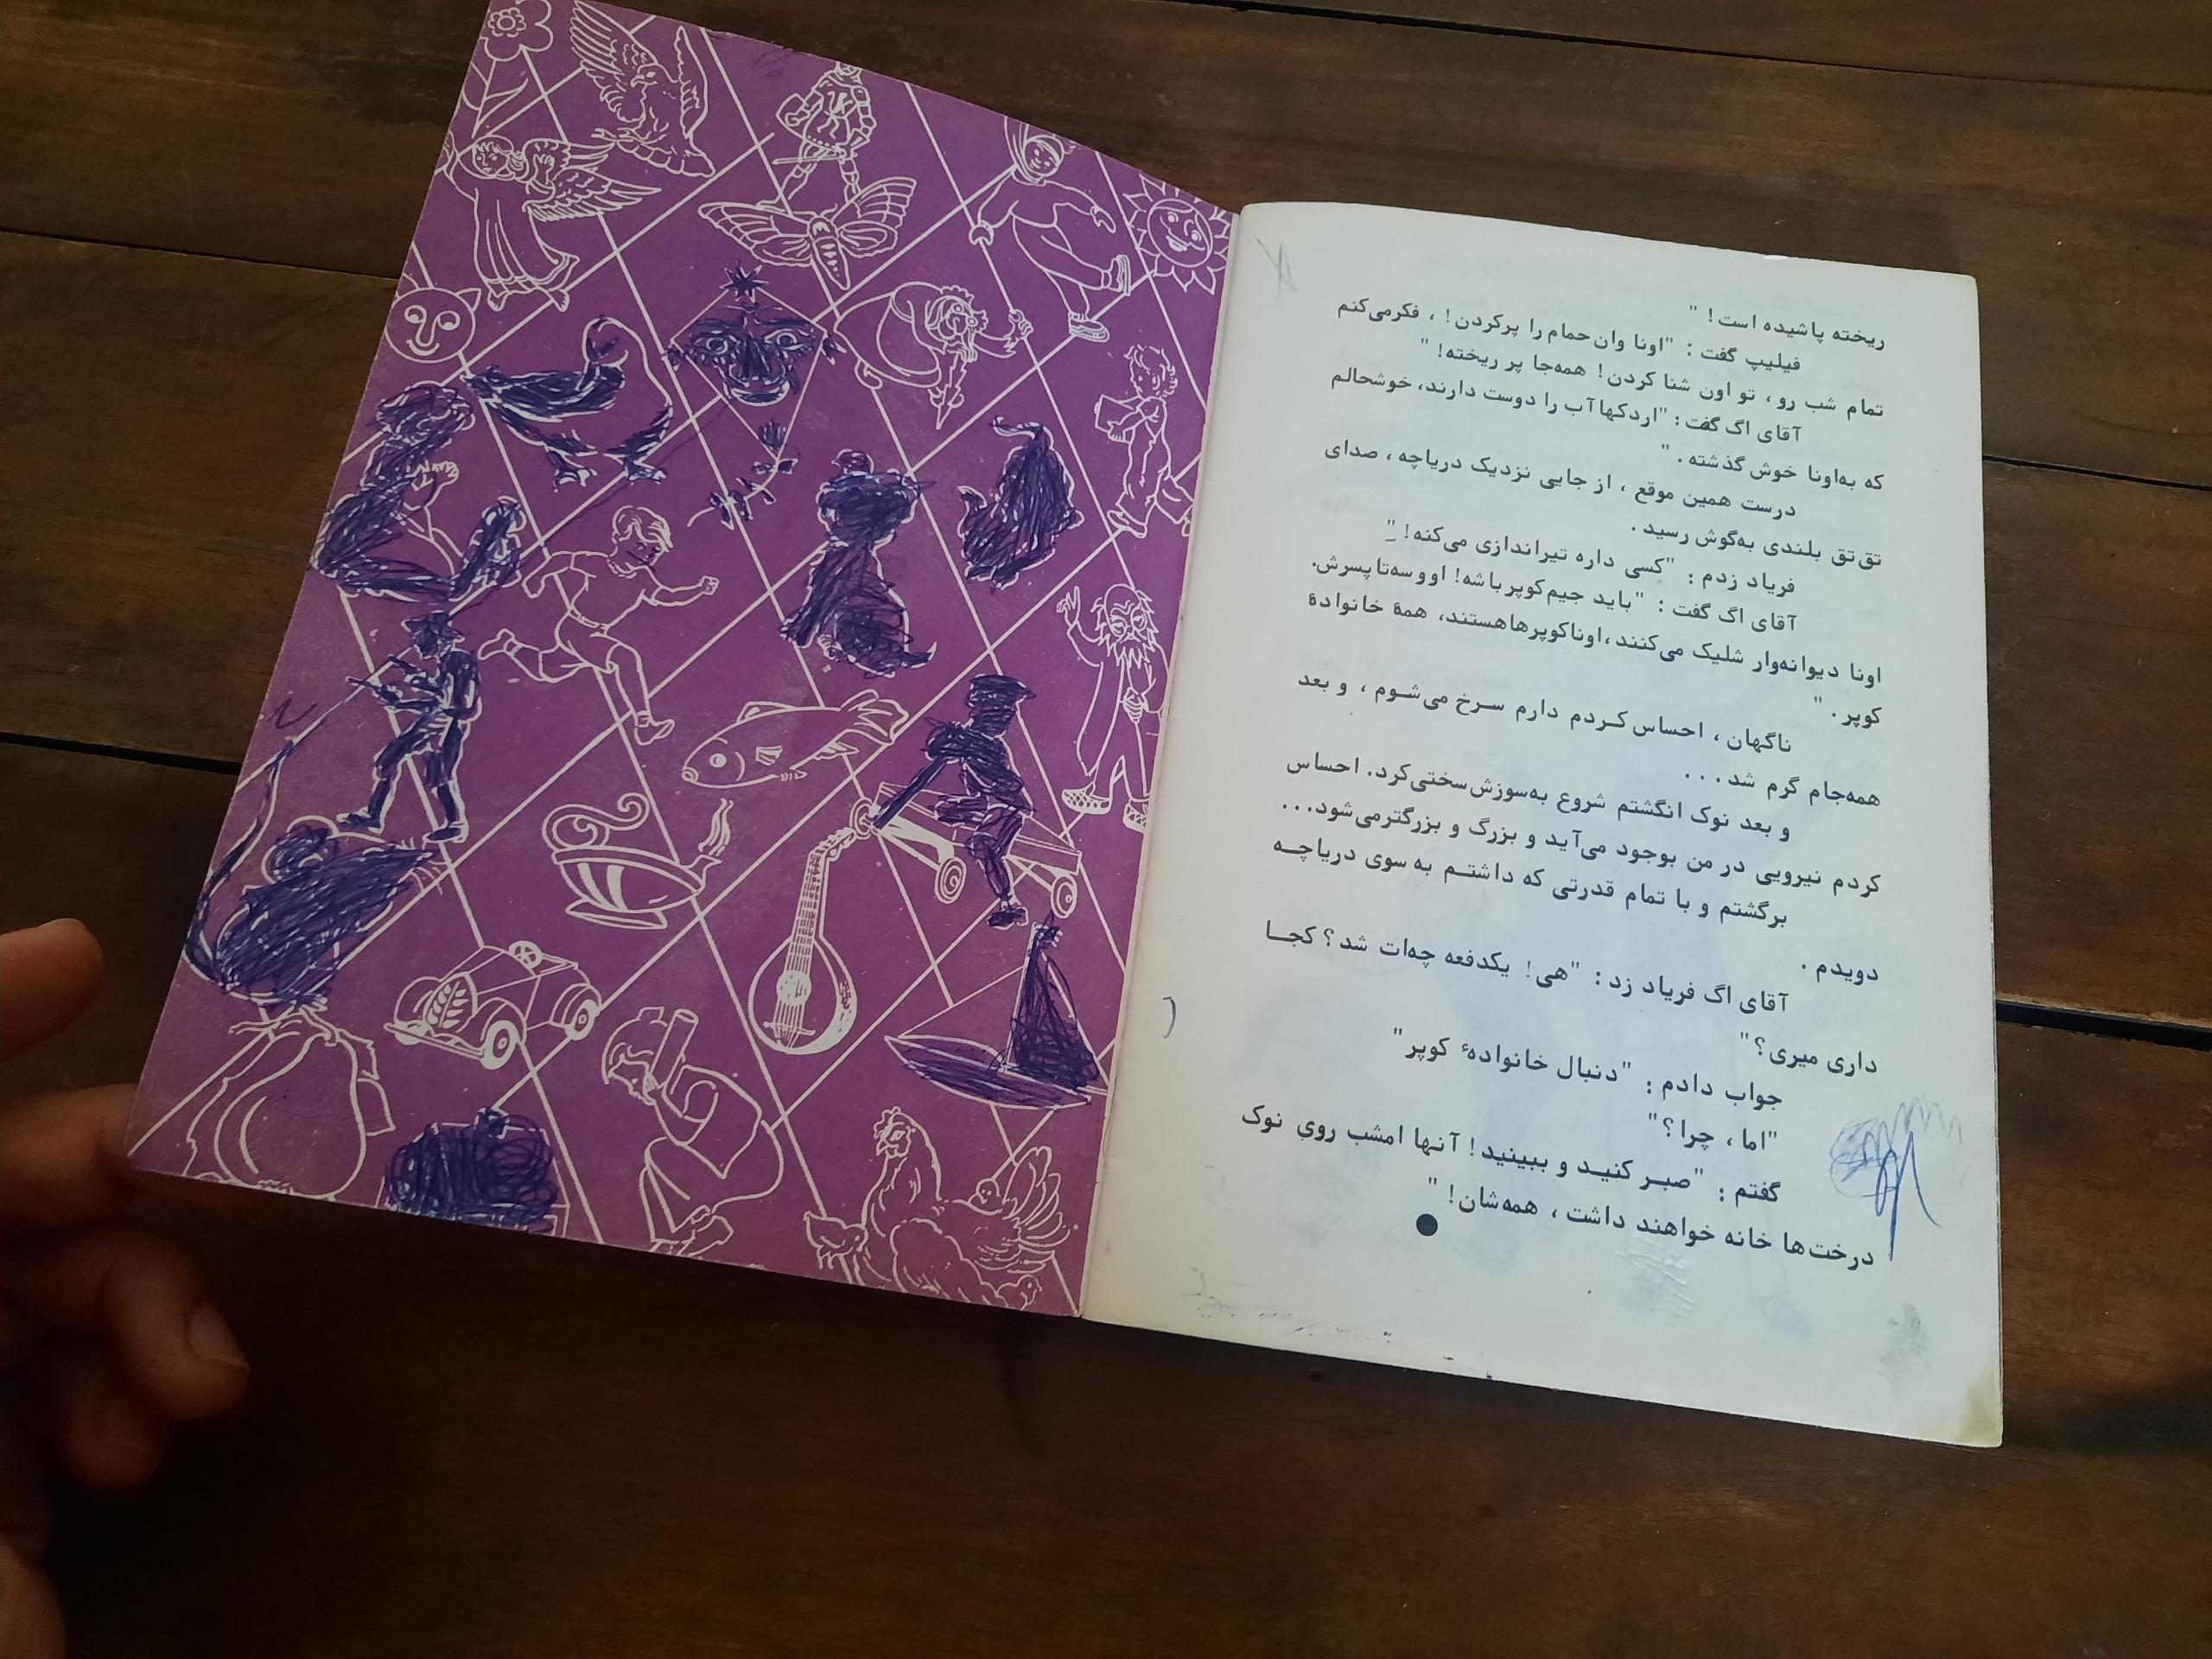 ریخته پاشیده است! "
فیلیپ گفت : "اونا وان حمام را پرکردن! ، فکرمی‌کنم
تمام شب رو ، تو اون شنا کردن! همه‌جا پر ریخته! "
آقای اگ گفت : "اردکها آب را دوست دارند، خوشحالم
که به‌اونا خوش گذشته . "
درست همین موقع ، از جایی نزدیک دریاچه ، صدای
تق‌تق بلندی به‌گوش رسید .
فریاد زدم : "کسی داره تیراندازی می‌کنه! "
آقای اگ گفت : "باید جیم‌کوپر باشه! او و سه‌تا پسرش.
اونا دیوانه‌وار شلیک می‌کنند ، اونا کوپرها هستند، همهٔ خانوادهٔ
کوپر . "
ناگهان ، احساس کـردم دارم سـرخ می‌شـوم ، و بعد
همه‌جام گرم شد . . .
و بعد نوک انگشتم شروع به‌سوزش‌سختی‌کرد. احساس
کردم نیرویی در من بوجود می‌آید و بزرگ و بزرگترمی‌شود...
برگشتم و با تمام قدرتی که داشتـم به سوی دریاچـه
دویدم .
آقای اگ فریاد زد : "هی! یکدفعه چه‌ات شد؟ کجـا
داری میری؟ "
جواب دادم : "دنبال خانوادهٔ کوپر "
"اما ، چرا؟ "
گفتم : "صبـر کنیـد و ببینید! آنها امشب روی نوک
درخت‌ها خانه خواهند داشت ، همه‌شان! "